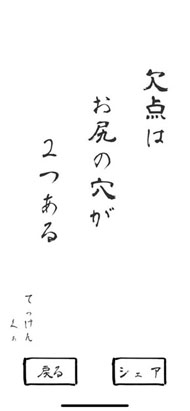 欠点は
お尻の穴が
2つある
てっけん
戻る
シェア